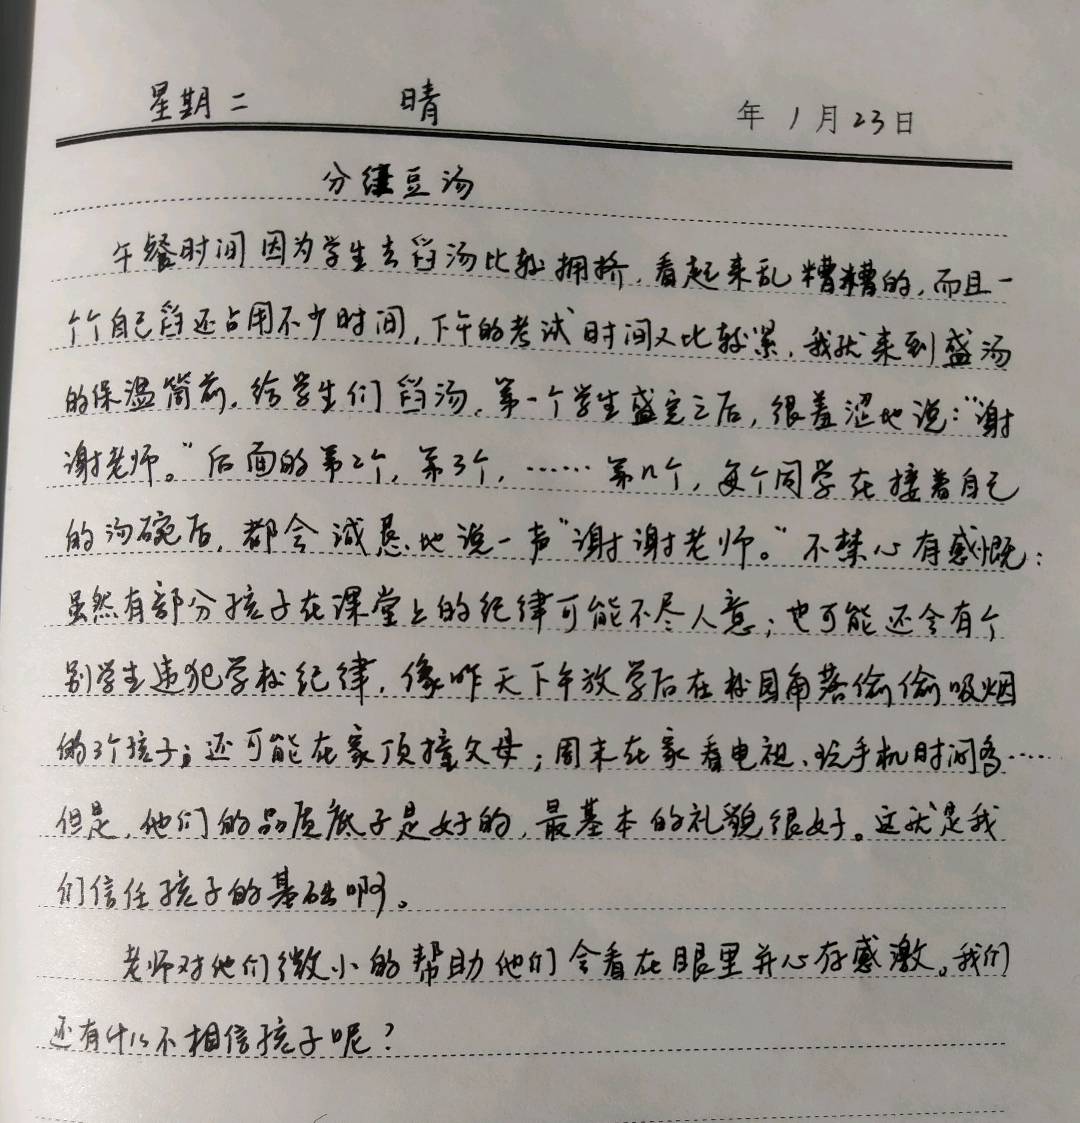 星期二 晴 年1月23日
分红豆汤
午餐时间因为学生去舀汤比较拥挤，看起来乱糟糟的，而且一
个个自己舀还占用不少时间，下午的考试时间又比较紧，我就来到盛汤
的保温筒前，给学生们舀汤，第一个学生盛完之后，很羞涩地说：“谢
谢老师。”后面的第2个，第3个，……第n个，每个同学在接着自己
的汤碗后，都会诚恳地说一声“谢谢老师。”不禁心有感慨：
虽然有部分孩子在课堂上的纪律可能不尽人意；也可能还会有个
别学生违犯学校纪律，像昨天下午放学后在校园角落偷偷吸烟
的3个孩子；还可能在家顶撞父母；周末在家看电视、玩手机时间多……
但是，他们的品质底子是好的，最基本的礼貌很好。这就是我
们信任孩子的基础啊。
老师对他们微小的帮助他们会看在眼里并心存感激。我们
还有什么不相信孩子呢？